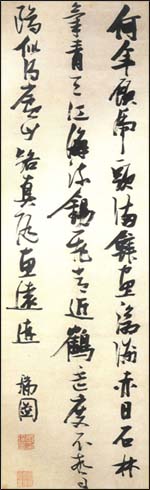 何年顧虎頭滿壁畫滄洲赤日石林
氣青天江海流錫飛常近鶴杯度不驚
鷗似得廬山路真隨惠遠遊
瑞圖